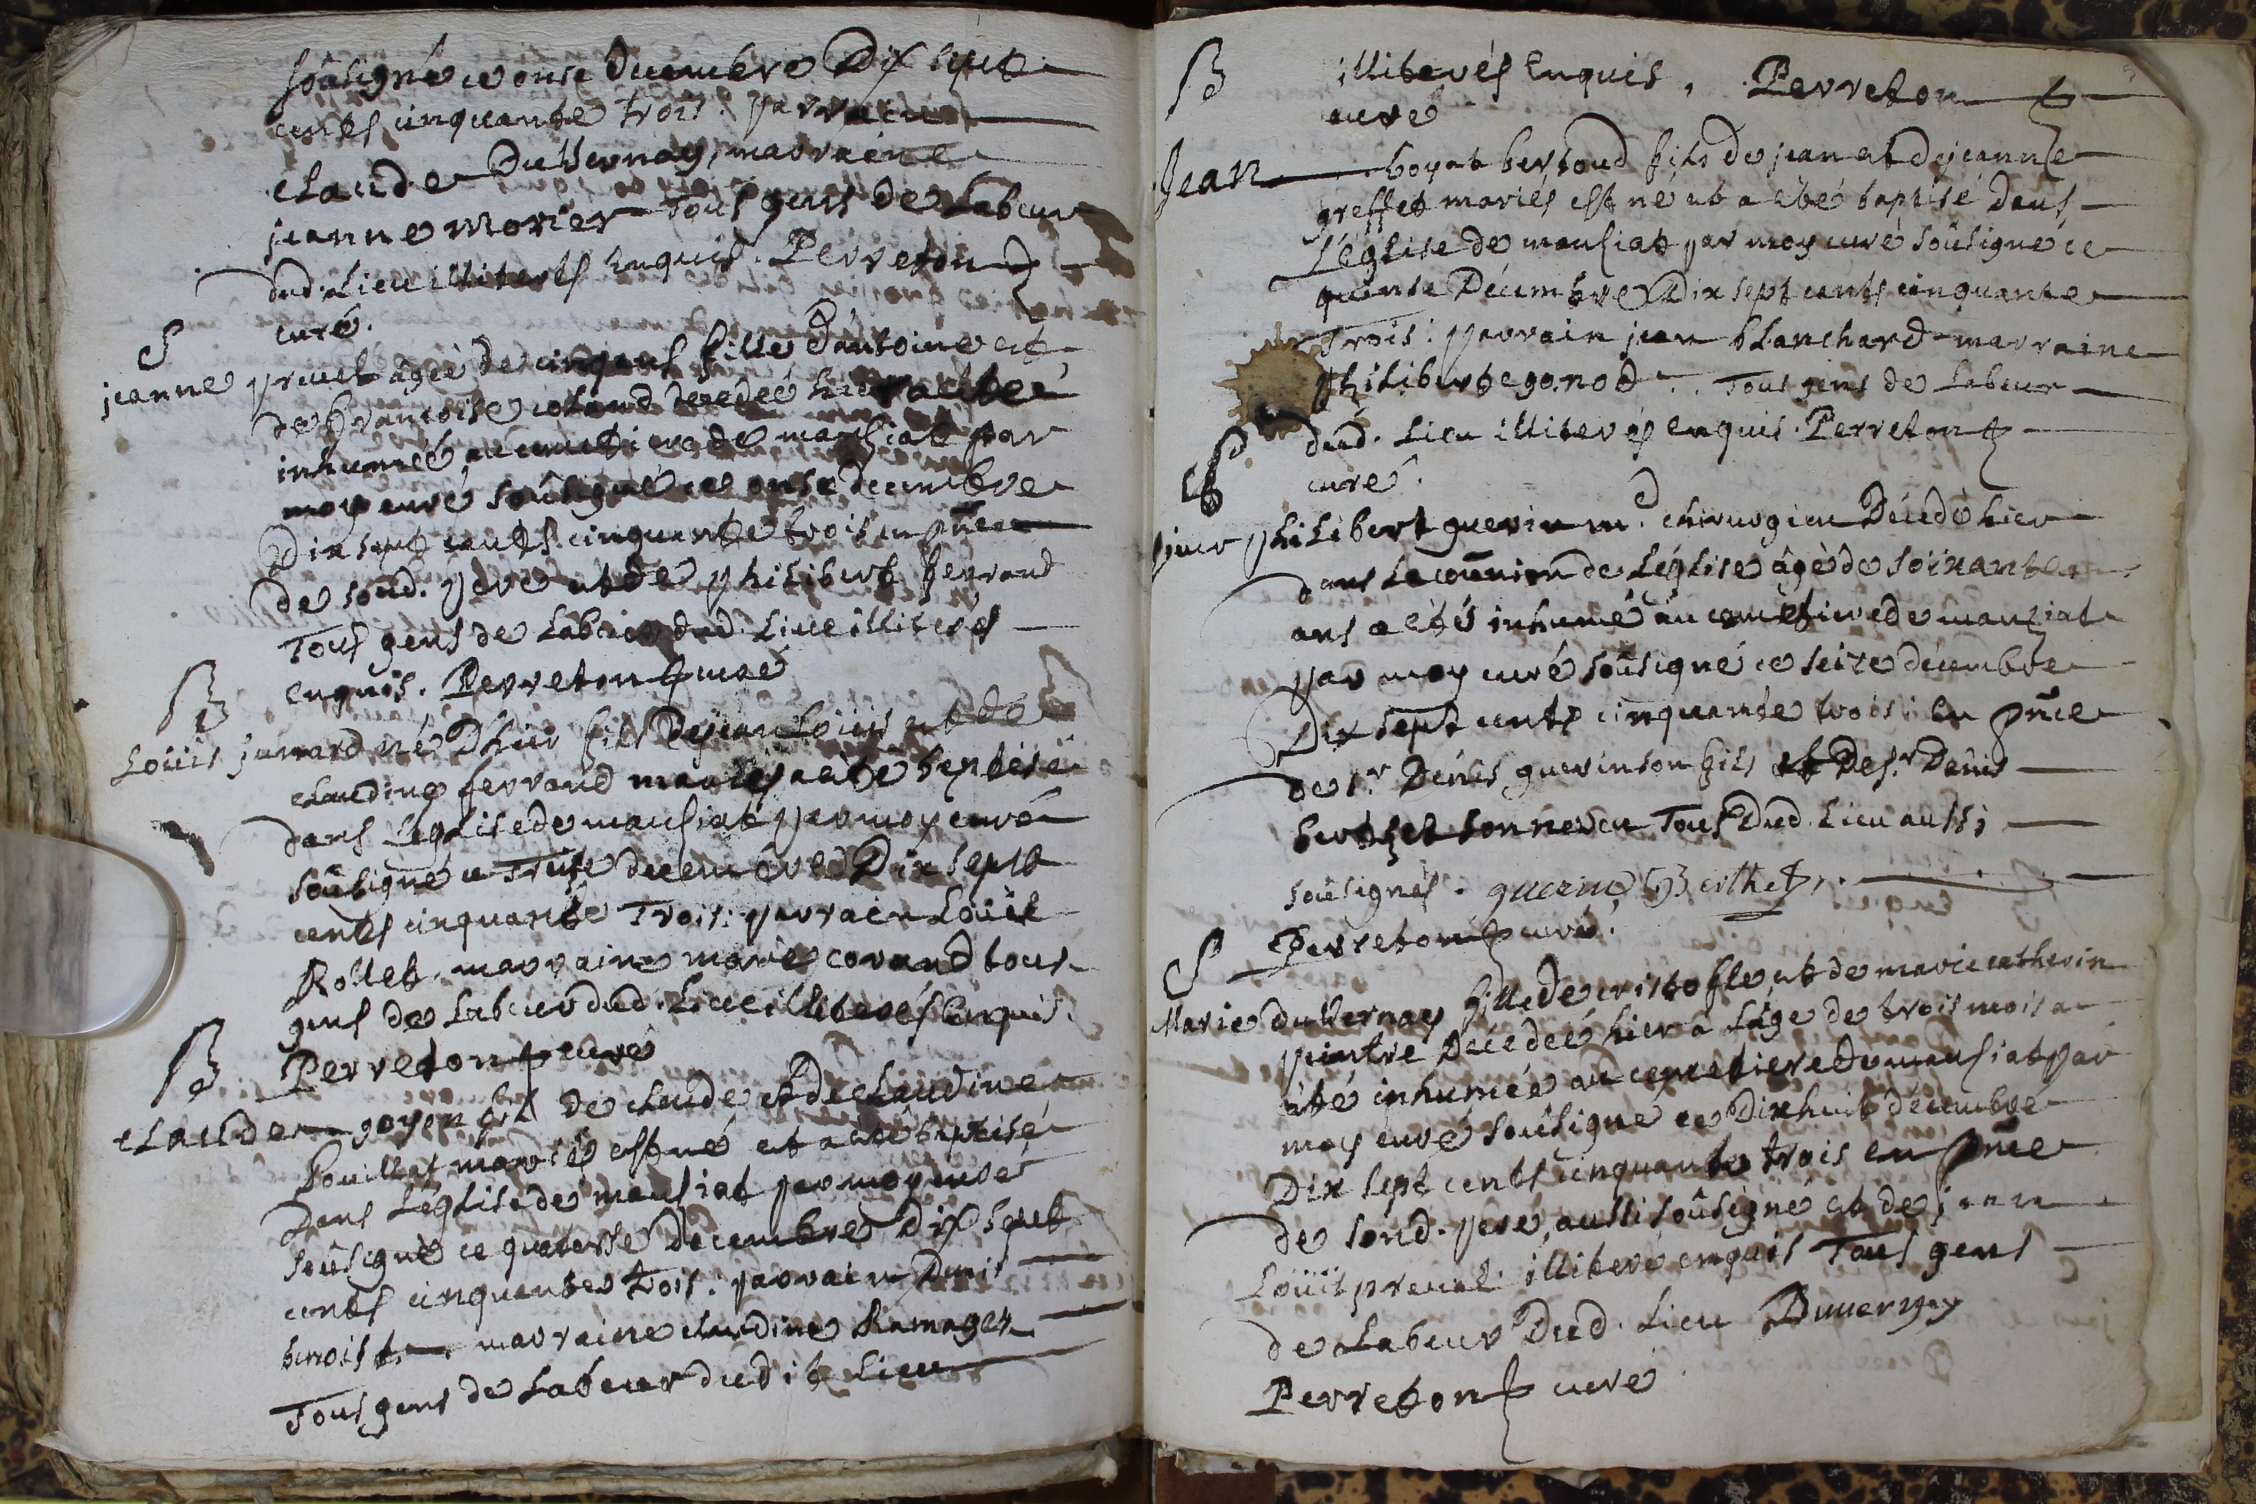 soûsigné ce onse decembre Dix sept
cents cinquante trois. parrain
claude Duvernay, marraine
jeanne morier Tous gens de Labeur
dud. Lieu illiterés Enquis. Perreton
curé.
S
jeanne prevel âgée de cinq ans fille d'antoine et
de françoise coland décédée hier a été
inhumé au cimetiere de mansiat par
moy curé soûsigné ce onse decembre
Dix sept cents cinquante trois en pñce
de soud. pere et de philibert ferrand
Tous gens de Labeur dud. Lieu illiterés
enquis. Perreton curé
B
Loüis junard né D'hier fils De jean Loüis et de
claudine ferrand mariés a été baptisé
dans L'église de mansiat par moy curé
soûsigné ce Treise decembre Dix sept
cents cinquante Trois. parrain Loüis
Rollet. marraine marie corand tous
gens de Labeur dud. Lieu illiterés Enquis.
Perreton curé
B
claude goyon fils de claude et de claudine
Pouillat mariés est né et a été baptisé
Dans L'église de mansiat par moy curé
soûsigné ce quatorse decembre Dix sept
cents cinquante trois. parrain Denis
benoist marraine claudine Ramager
Tous gens de Labeur dudit Lieu
illiterés Enquis, Perreton
curé
B
Jean boyat bertoud fils de jean et de jeanne
greffet mariés est né et a été baptisé Dans
L'église de mansiat par moy curé soûsigné ce
quinse Décembre Dix sept cents cinquante
Trois: parrain jean blanchard marraine
philiberte gonod. Tous gens de Labeur
dud. Lieu illiterés enquis. Perreton
curé.
S
philibert guerin m.d chirurgien Décédé hier
dans La coũnion de L'église âgé de soixante
ans a étés inhumé au cimetiere de manziat
par moy curé soûsigné ce seize décembre
Dix sept cents cinquante trois: En pñce
de s.r Denis guerin son fils et De s.r Denis
berthet son neveu Tous Dud. Lieu aussi
soûsignés. guerin, Berthet,
Perreton curé.
S
Marie duvernay fille de cristofle et de marie catherin
peintre Décédée hier a L'âge de trois mois a
été inhumée au cimetiere de mansiat par
moy curé soûsigné ce Dixhuit décembre
Dix sept cents cinquante trois en pñce
de soud. pere, aussi soûsigné et de jean
Loüis prevel illiteré enquis Tous gens
de Labeur Dud. Lieu Duvernay
Perreton curé